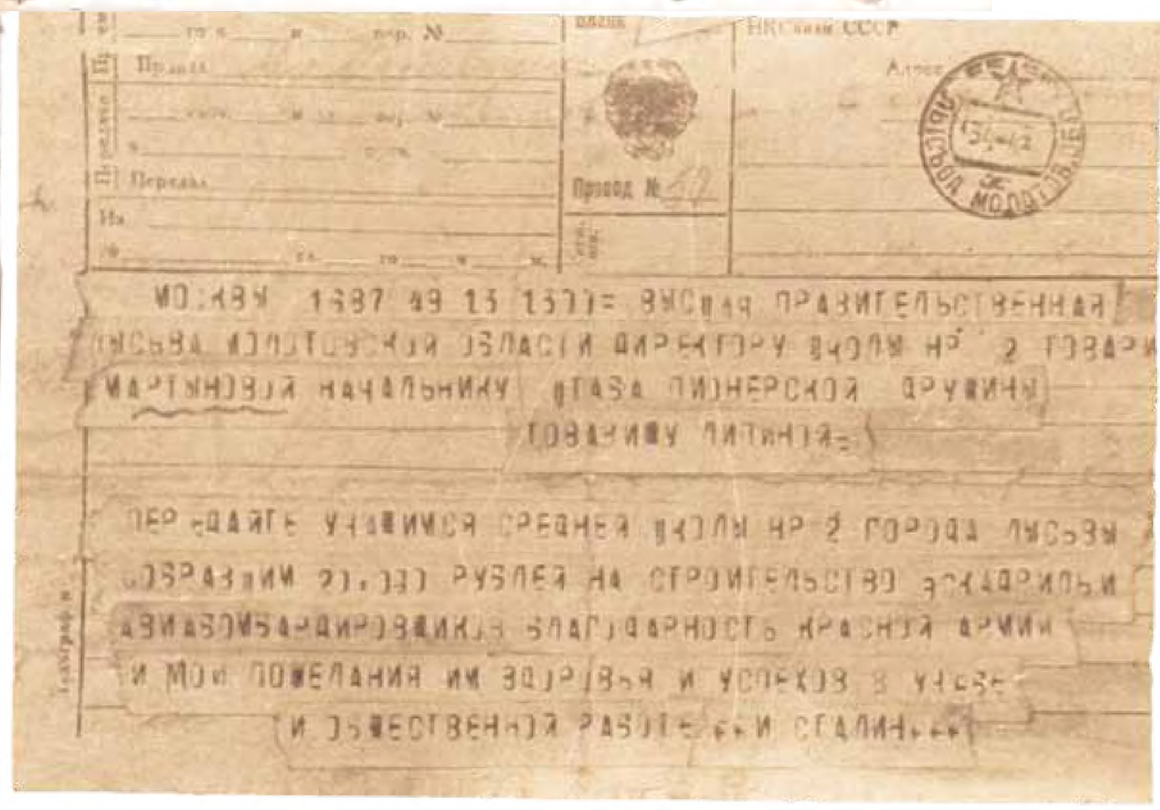 го ч. и пер. №
бланк
НКСвязи СССР
Правда
Адрес
Передал
Провод № 52
На
ЛЫСЬВА МОЛОТОВ.
МОСКВЫ 1687 49 13 1300= ВЫСШАЯ ПРАВИТЕЛЬСТВЕННАЯ
ЛЫСЬВА МОЛОТОВСКОЙ ОБЛАСТИ ДИРЕКТОРУ ШКОЛЫ НР 2 ТОВАРИ
МАРТЫНОВОЙ НАЧАЛЬНИКУ ШТАБА ПИОНЕРСКОЙ ДРУЖИНЫ
ТОВАРИЩУ ЛИТИНОЙ=
ПЕРЕДАЙТЕ УЧАЩИМСЯ СРЕДНЕЙ ШКОЛЫ НР 2 ГОРОДА ЛЫСЬВЫ
СОБРАВШИМ 20.000 РУБЛЕЙ НА СТРОИТЕЛЬСТВО ЭСКАДРИЛЬИ
АВИАБОМБАРДИРОВЩИКОВ БЛАГОДАРНОСТЬ КРАСНОЙ АРМИИ
И МОИ ПОЖЕЛАНИЯ ИМ ЗДОРОВЬЯ И УСПЕХОВ В УЧЕБЕ
И ОБЩЕСТВЕННОЙ РАБОТЕ ++И СТАЛИН+++
Телеграф м